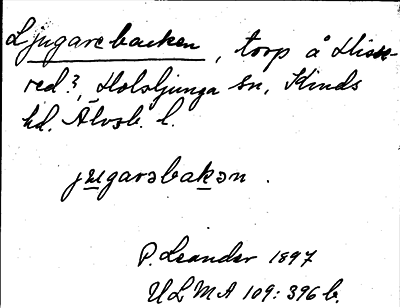 Ljugarebacken, torp å Hiss-
red?, Holsljunga sn, Kinds
hd. Älvsb. l.
jugarəbakən.
P. Leander 1897
ULMA 109:396 b.